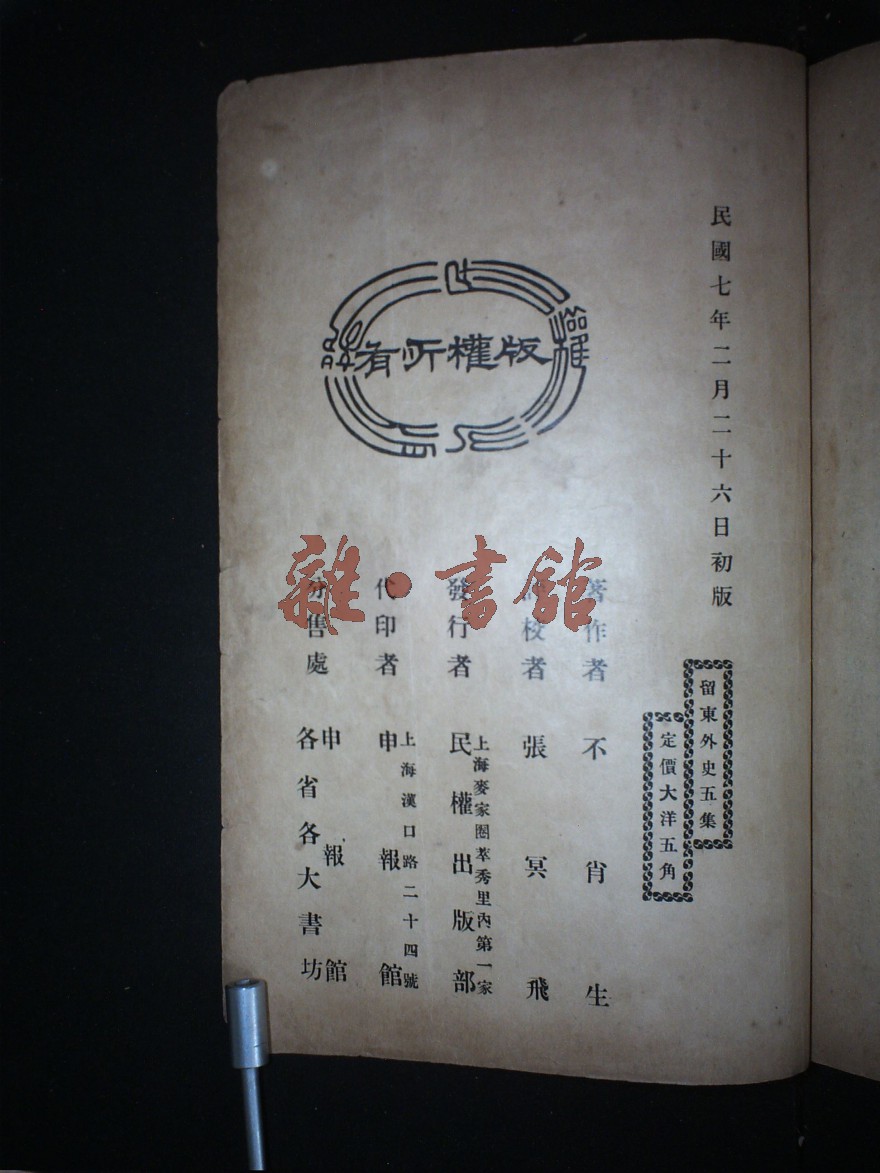 民國七年二月二十六日初版
留東外史五集
定價大洋五角
版權所有
著作者 不肖生
校者 張冥飛
發行者 上海麥家圈萃秀里內第一家
民權出版部
代印者 上海漢口路二十四號
申報館
分售處 申報館
各省各大書坊
雜·書館